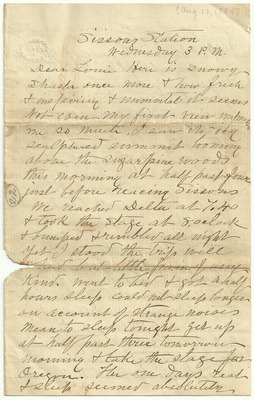 Sissons Station
Wednesday 3 P.M.
Dear Louie Here is snowy
Shasta once more & how fresh
& inspiring & immortal it seems
Not even my first view moved
me so much. I saw the icy
sculptured summit looming
above the sugarpine woods
this morning at half past four
just before reaching Sissons
We reached Delta at 7.40
& took the stage at 8 oclock
& bumped & rumbled all night
yet I stood the trip well
kind. went to bed & got a half
hours sleep could not sleep longer
on account of strange noises
Mean to sleep tonight get up
at half past three tomorrow
morning & take the stage for
Oregon. The one days rest
& sleep seemed absolutely